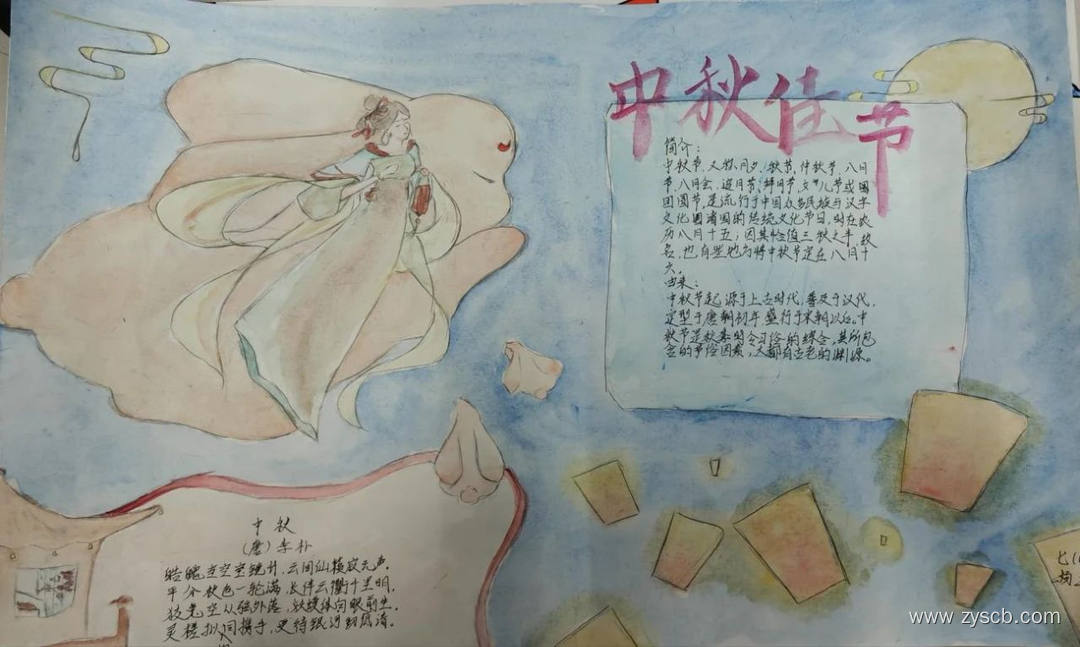 中秋佳节
简介:
中秋节,又称月夕、秋节、仲秋节、八月
节、八月会、追月节、拜月节、女儿节或团
圆节,是流行于中国众多民族与汉字
文化圈诸国的传统文化节日,时在农
历八月十五;因其恰值三秋之半,故
名,也有些地方将中秋节定在八月十
六。
由来:
中秋节起源于上古时代,普及于汉代,
定型于唐朝初年,盛行于宋朝以后。中
秋节是秋季时令习俗的综合,其所包
含的节俗因素,大都有古老的渊源。
中秋
(唐)李朴
皓魄当空宝镜升,云间仙籁寂无声。
平分秋色一轮满,长伴云衢千里明。
狡兔空从弦外落,妖蟆休向眼前生。
灵槎拟同携手,更待银河彻底清。
七(
www.zyscb.com